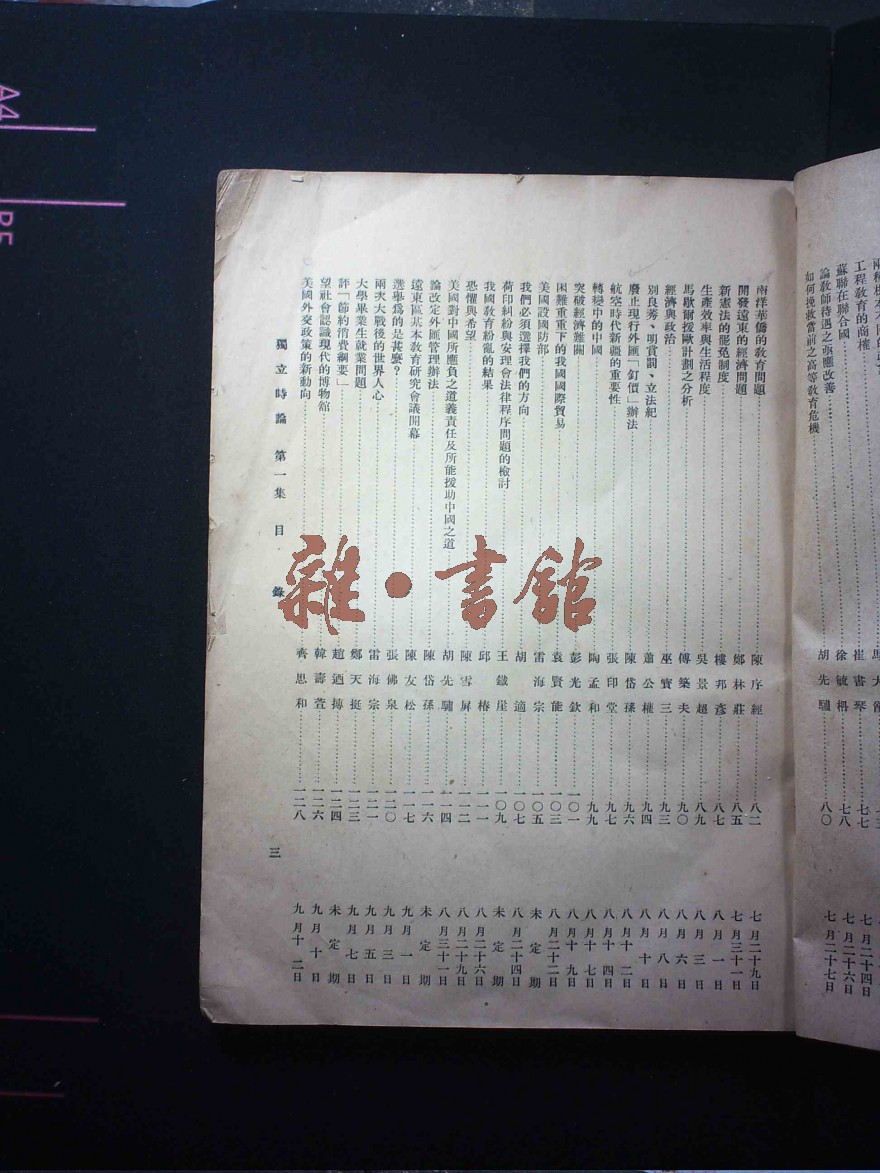 工程教育的商榷
蘇聯在聯合國 崔書琴 七七 七月二十四日
論教師待遇之亟應改善 徐毓枬 七八 七月二十六日
如何挽救當前之高等教育危機 胡先驌 八〇 七月二十七日
南洋華僑的教育問題 陳序經 八二 七月二十九日
開發遠東的經濟問題 鄭林莊 八五 七月三十一日
新憲法的罷免制度 樓邦彥 八七 八月一日
生產效率與生活程度 吳景超 八九 八月三日
馬歇爾援歐計劃之分析 傅築夫 九〇 八月六日
經濟與政治 巫寶三 九三 八月八日
別良莠、明賞罰、立法紀 蕭公權 九四 八月十日
廢止現行外匯「釘價」辦法 陳岱孫 九六 八月十二日
航空時代新疆的重要性 張印堂 九七 八月十四日
轉變中的中國 陶孟和 九九 八月十七日
突破經濟難關 彭光欽 一〇一 八月十九日
困難重重下的我國國際貿易 袁賢能 一〇三 八月二十二日
美國設國防部 雷海宗 一〇五 未定期
我們必須選擇我們的方向 胡適 一〇七 八月二十四日
荷印糾紛與安理會法律程序問題的檢討 王鐵崖 一〇九 未定期
我國教育紛亂的結果 邱椿 一一一 八月二十六日
恐懼與希望 陳雪屏 一一二 八月二十九日
美國對中國所應負之道義責任及所能援助中國之道 胡先驌 一一四 八月三十一日
論改定外匯管理辦法 陳岱孫 一一六 未定期
遠東區基本教育研究會議開幕 陳友松 一一七 九月一日
選舉爲的是甚麼? 張佛泉 一二〇 九月三日
兩次大戰後的世界人心 雷海宗 一二一 九月五日
大學畢業生就業問題 鄭天挺 一二三 九月七日
評「節約消費綱要」 趙迺搏 一二四 未定期
望社會認識現代的博物館 韓壽萱 一二六 九月十日
美國外交政策的新動向 齊思和 一二八 九月十二日
獨立時論 第一集 目錄 三
雜•書館
A4